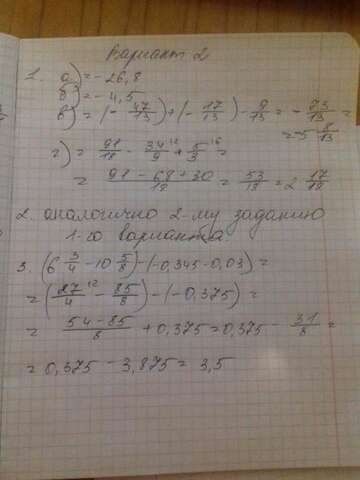 Вариант 2
1. а) = -26,8
б) = -4,5
в) = (-47/13) + (-17/13) - 9/13 = -73/13 =
= -5 8/13
г) = 91/18 - 34/9 + 5/3 =
= 91 - 68 + 30/18 = 53/18 = 2 17/18
2. аналогично 2-му заданию
1-го варианта
3. (6 3/4 - 10 5/8) - (-0,345 - 0,03) =
= (27/4 - 85/8) - (-0,375) =
= 54 - 85/8 + 0,375 = 0,375 - 31/8 =
= 0,375 - 3,875 = 3,5